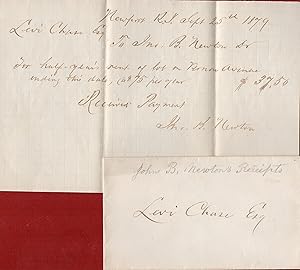 Newport R.I. Sept 25th 1879
Levi Chase Esq
To Jno. B. Newton Dr
For half-year's rent of lot on Vernon Avenue
ending this date, @ 75 per year $ 37.50
Received Payment
Jno. B. Newton
John B. Newton's Receipts
Levi Chase Esq